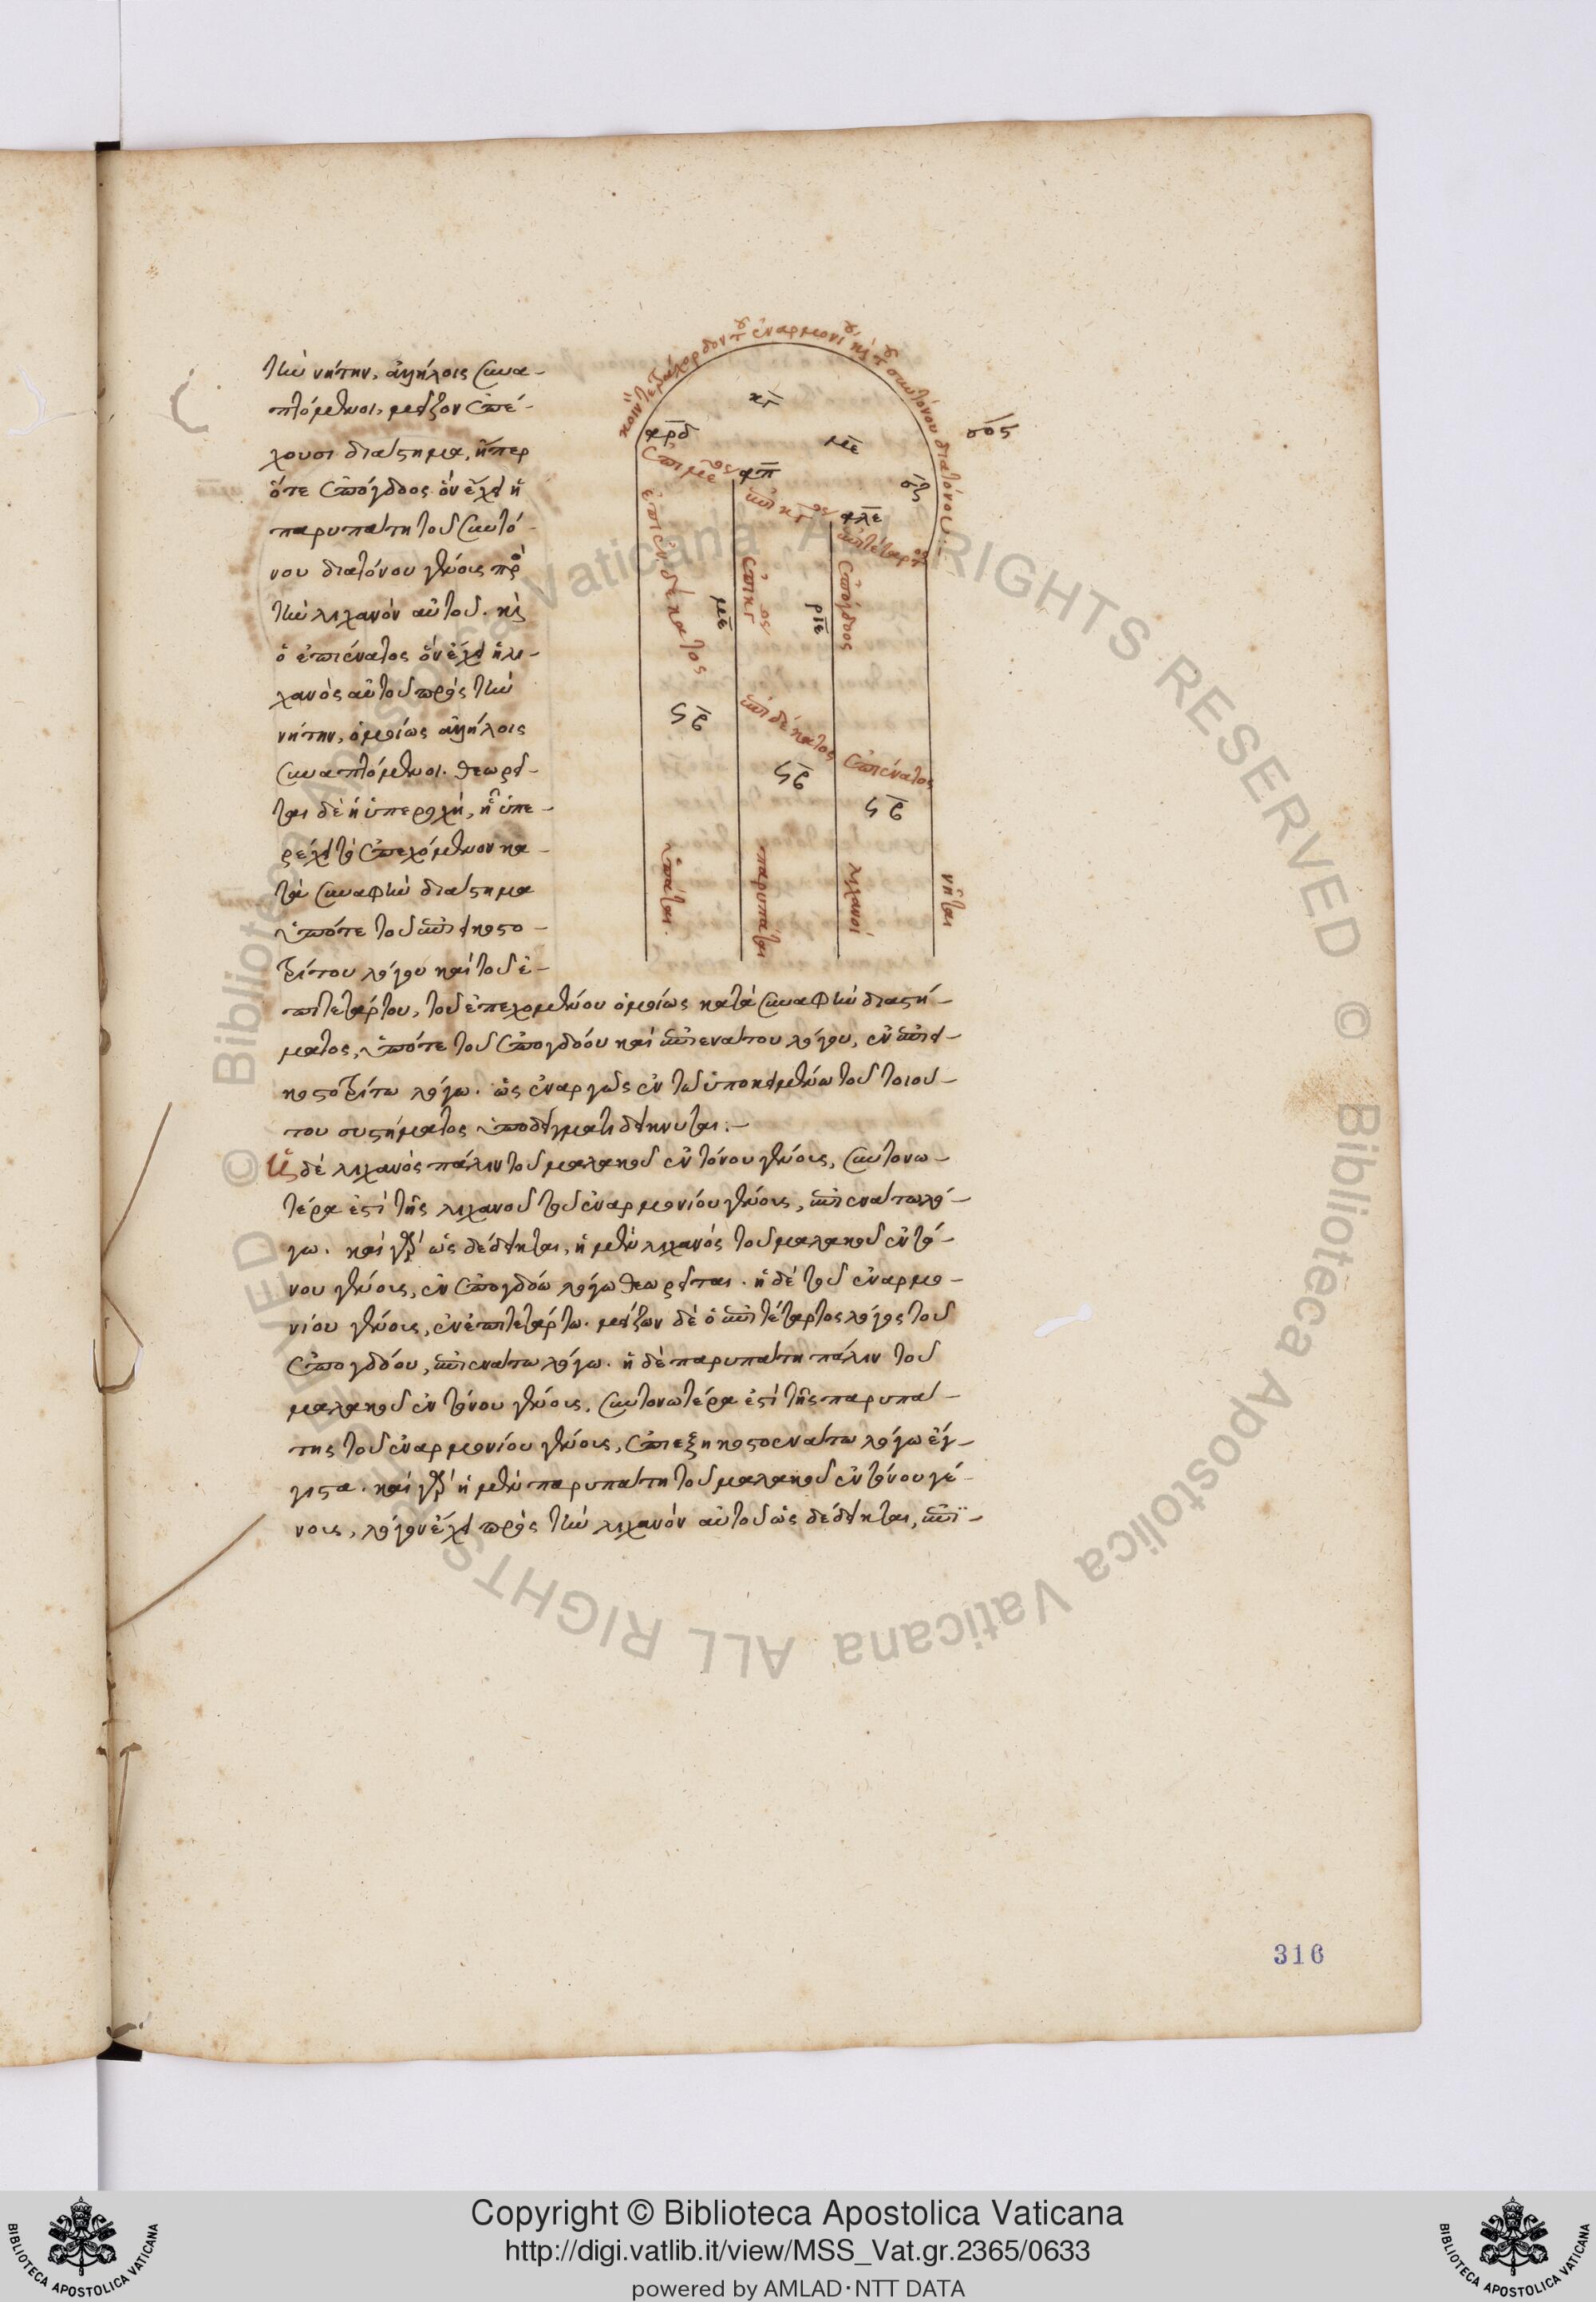 τὴν νήτην, ἀλλήλοις συνα-
πτόμενοι, μεῖζον ἐπέ-
χουσι διάστημα, ἤπερ
ὅτε ἐπόγδοος ὃν ἔχει ἡ
παρυπάτη τοῦ συντό-
νου διατόνου γένους πρὸς
τὴν λιχανὸν αὐτοῦ. καὶ
ὁ ἐπιένατος ὃν ἔχει ἡ λι-
χανὸς αὐτοῦ πρὸς τὴν
νήτην, ὁμοίως ἀλλήλοις
συναπτόμενοι. θεωρεῖ-
ται δὲ ἡ ὑπεροχή, ᾗ ὑπε-
ρέχει τὸ ἐπεχόμενον κα-
τὰ συναφὴν διάστημα
ὑπό τε τοῦ ἐπιεικοστο-
τρίτου λόγου καὶ τοῦ ἐ-
πιτετάρτου, τοῦ ἐπεχομένου ὁμοίως κατὰ συναφὴν διαστή-
ματος, ὑπό τε τοῦ ἐπογδόου καὶ ἐπιενάτου λόγου, ἐν ἐπιει-
κοστοτρίτῳ λόγῳ. ὡς ἐναργῶς ἐν τῷ ὑποκειμένῳ τοῦ τοιού-
του συστήματος ὑποδείγματι δείκνυται.
Ἡ δὲ λιχανὸς πάλιν τοῦ μαλακοῦ ἐντόνου γένους, συντονω-
τέρα ἐστὶ τῆς λιχανοῦ τοῦ ἐναρμονίου γένους, ἐπιενάτῳ λό-
γῳ. καὶ γὰρ ὡς δέδεικται, ἡ μὲν λιχανὸς τοῦ μαλακοῦ ἐντό-
νου γένους, ἐν ἐπογδόῳ λόγῳ θεωρεῖται. ἡ δὲ τοῦ ἐναρμο-
νίου γένους, ἐν ἐπιτετάρτῳ. μείζων δὲ ὁ ἐπιτέταρτος λόγος τοῦ
ἐπογδόου, ἐπιενάτῳ λόγῳ. ἡ δὲ παρυπάτη πάλιν τοῦ
μαλακοῦ ἐντόνου γένους, συντονωτέρα ἐστὶ τῆς παρυπά-
της τοῦ ἐναρμονίου γένους, ἐπιεξηκοστοενάτῳ λόγῳ ἔγ-
γιστα. καὶ γὰρ ἡ μὲν παρυπάτη τοῦ μαλακοῦ ἐντόνου γέ-
νους, λόγον ἔχει πρὸς τὴν λιχανὸν αὐτοῦ ὡς δέδεικται, ἐπι-
κοινὸν τετράχορδον τοῦ ἐναρμονίου καὶ τοῦ συντόνου διατόνου
κγ
με
ἐπιμεος
φπ
ἐπικγος
φλε
ἐπιτέταρτος
ἐπιενδέκατος
με
ἐπικγος
ριε
ἐπόγδοος
ἐπιδέκατος
ἐπιένατος
ὑπάται
παρυπάται
λιχανοί
νῆται
316
Copyright © Biblioteca Apostolica Vaticana
http://digi.vatlib.it/view/MSS_Vat.gr.2365/0633
powered by AMLAD·NTT DATA
BIBLIOTECA APOSTOLICA VATICANA
BIBLIOTECA APOSTOLICA VATICANA
© Biblioteca Apostolica Vaticana ALL RIGHTS RESERVED © Biblioteca Apostolica Vaticana ALL RIGHTS RESERVED